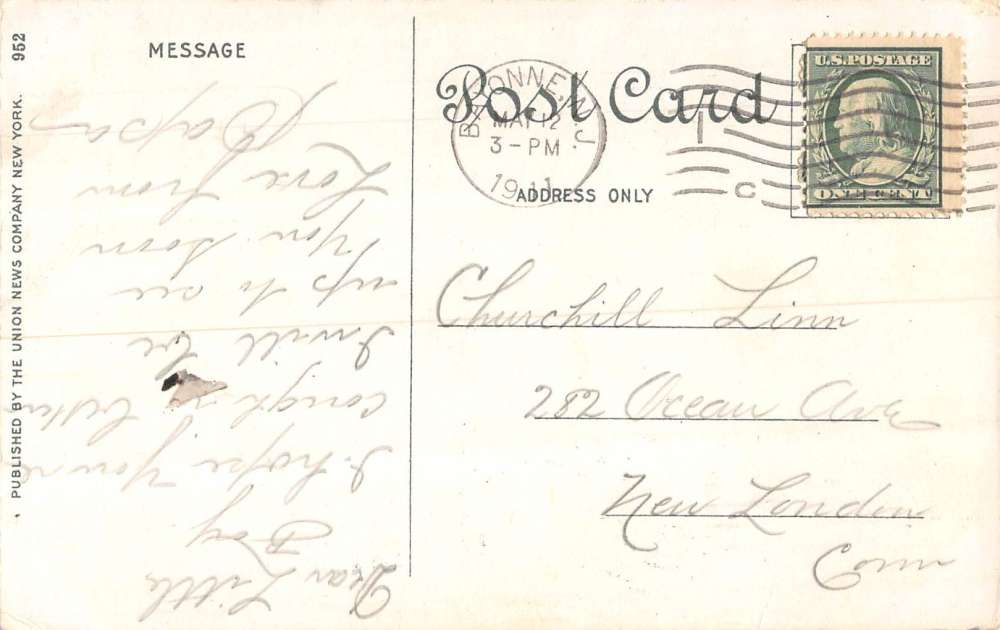 952
PUBLISHED BY THE UNION NEWS COMPANY NEW YORK.
MESSAGE
Dear Little
Boy
I hope your
cough is better
I will be
up to see
you soon
Love from
Papa
Post Card
ADDRESS ONLY
BAYONNE N.J.
MAY 12
3-PM
1911
C
U.S. POSTAGE
ONE CENT 1
Churchill Linn
282 Ocean Ave
New London
Conn